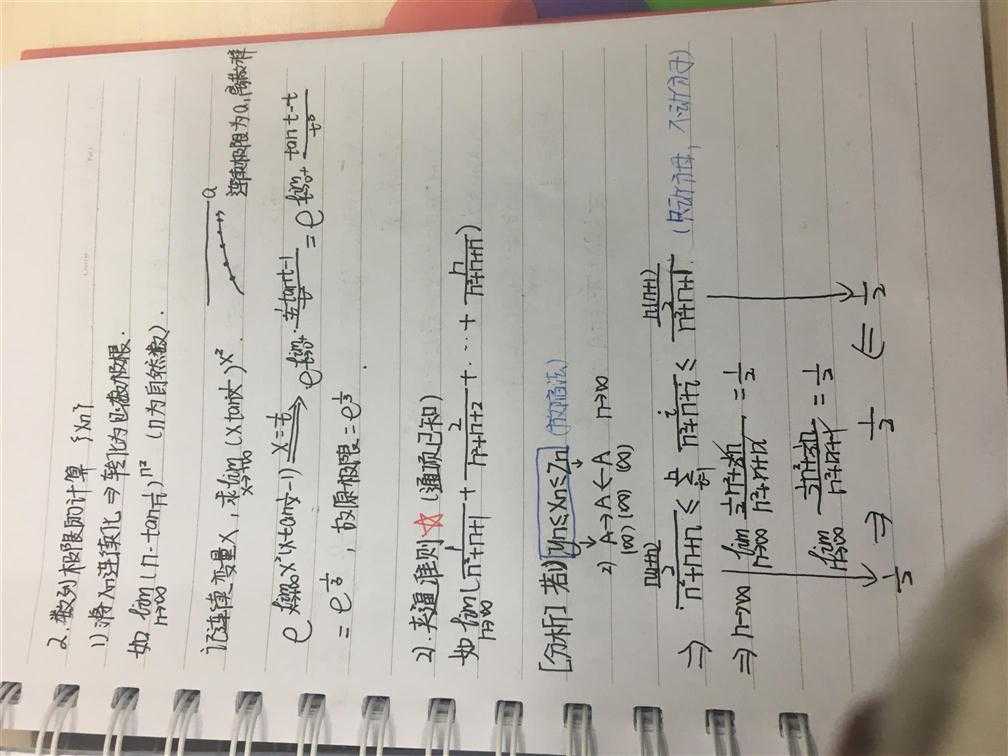 2. 数列极限的计算 {xn}
1) 将xn连续化 ⇒ 转化为函数极限.
如 lim(n→∞) (n·tan 1/n)^n² (n为自然数).
a
连续极限为a, 离散难
记连续变量x, 求 lim(x→+∞) (x tan 1/x)^x²
e^{lim(x→+∞) x²(x·tan 1/x -1)} x=1/t ⟹ e^{lim(t→0+) (1/t tan t -1)/t²} = e^{lim(t→0+) (tan t - t)/t³}
= e^{1/3}, 故原极限 = e^{1/3}
2). 夹逼准则 ☆ (通项已知)
如 lim(n→∞) (1/(n²+n+1) + 2/(n²+n+2) + ··· + n/(n²+n+n))
[分析] 若 1) yn ≤ xn ≤ zn (放缩法)
2) A → A ← A n→∞
(∞) (∞) (∞)
⇒ (n(n+1)/2)/(n²+n+n) ≤ Σ(i=1→n) i/(n²+n+i) ≤ (n(n+1)/2)/(n²+n+1) (只动分母, 不动分子)
⇒ n→∞ lim(n→∞) (1/2 n² + 1/2 n)/(n²+n+n) = 1/2
lim(n→∞) (1/2 n² + 1/2 n)/(n²+n+1) = 1/2
1/2 ⇒ 1/2 ⇐ 1/2